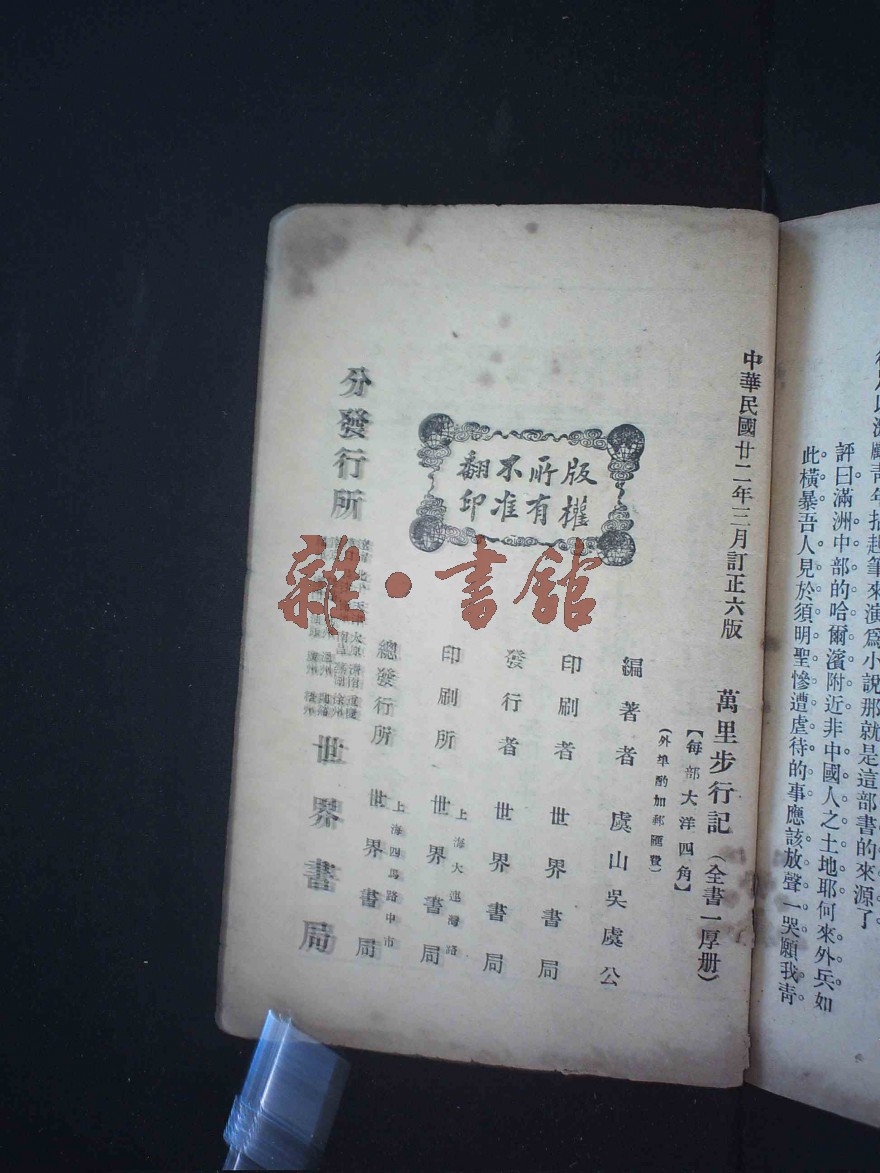 評曰滿洲中部的哈爾濱附近非中國人之土地耶何來外兵如
此橫暴吾人見於須明聖慘遭虐待的事應該放聲一哭願我靑
中華民國廿二年三月訂正六版
萬里步行記（全書一厚册）
【每部大洋四角】
（外埠酌加郵匯費）
編著者 虞山吳虞公
印刷者 世界書局
發行者 世界書局
印刷所 上海大連灣路 世界書局
總發行所 上海四馬路中市 世界書局
分發行所 世界書局
版權
所有
不准
翻印
雜·書館